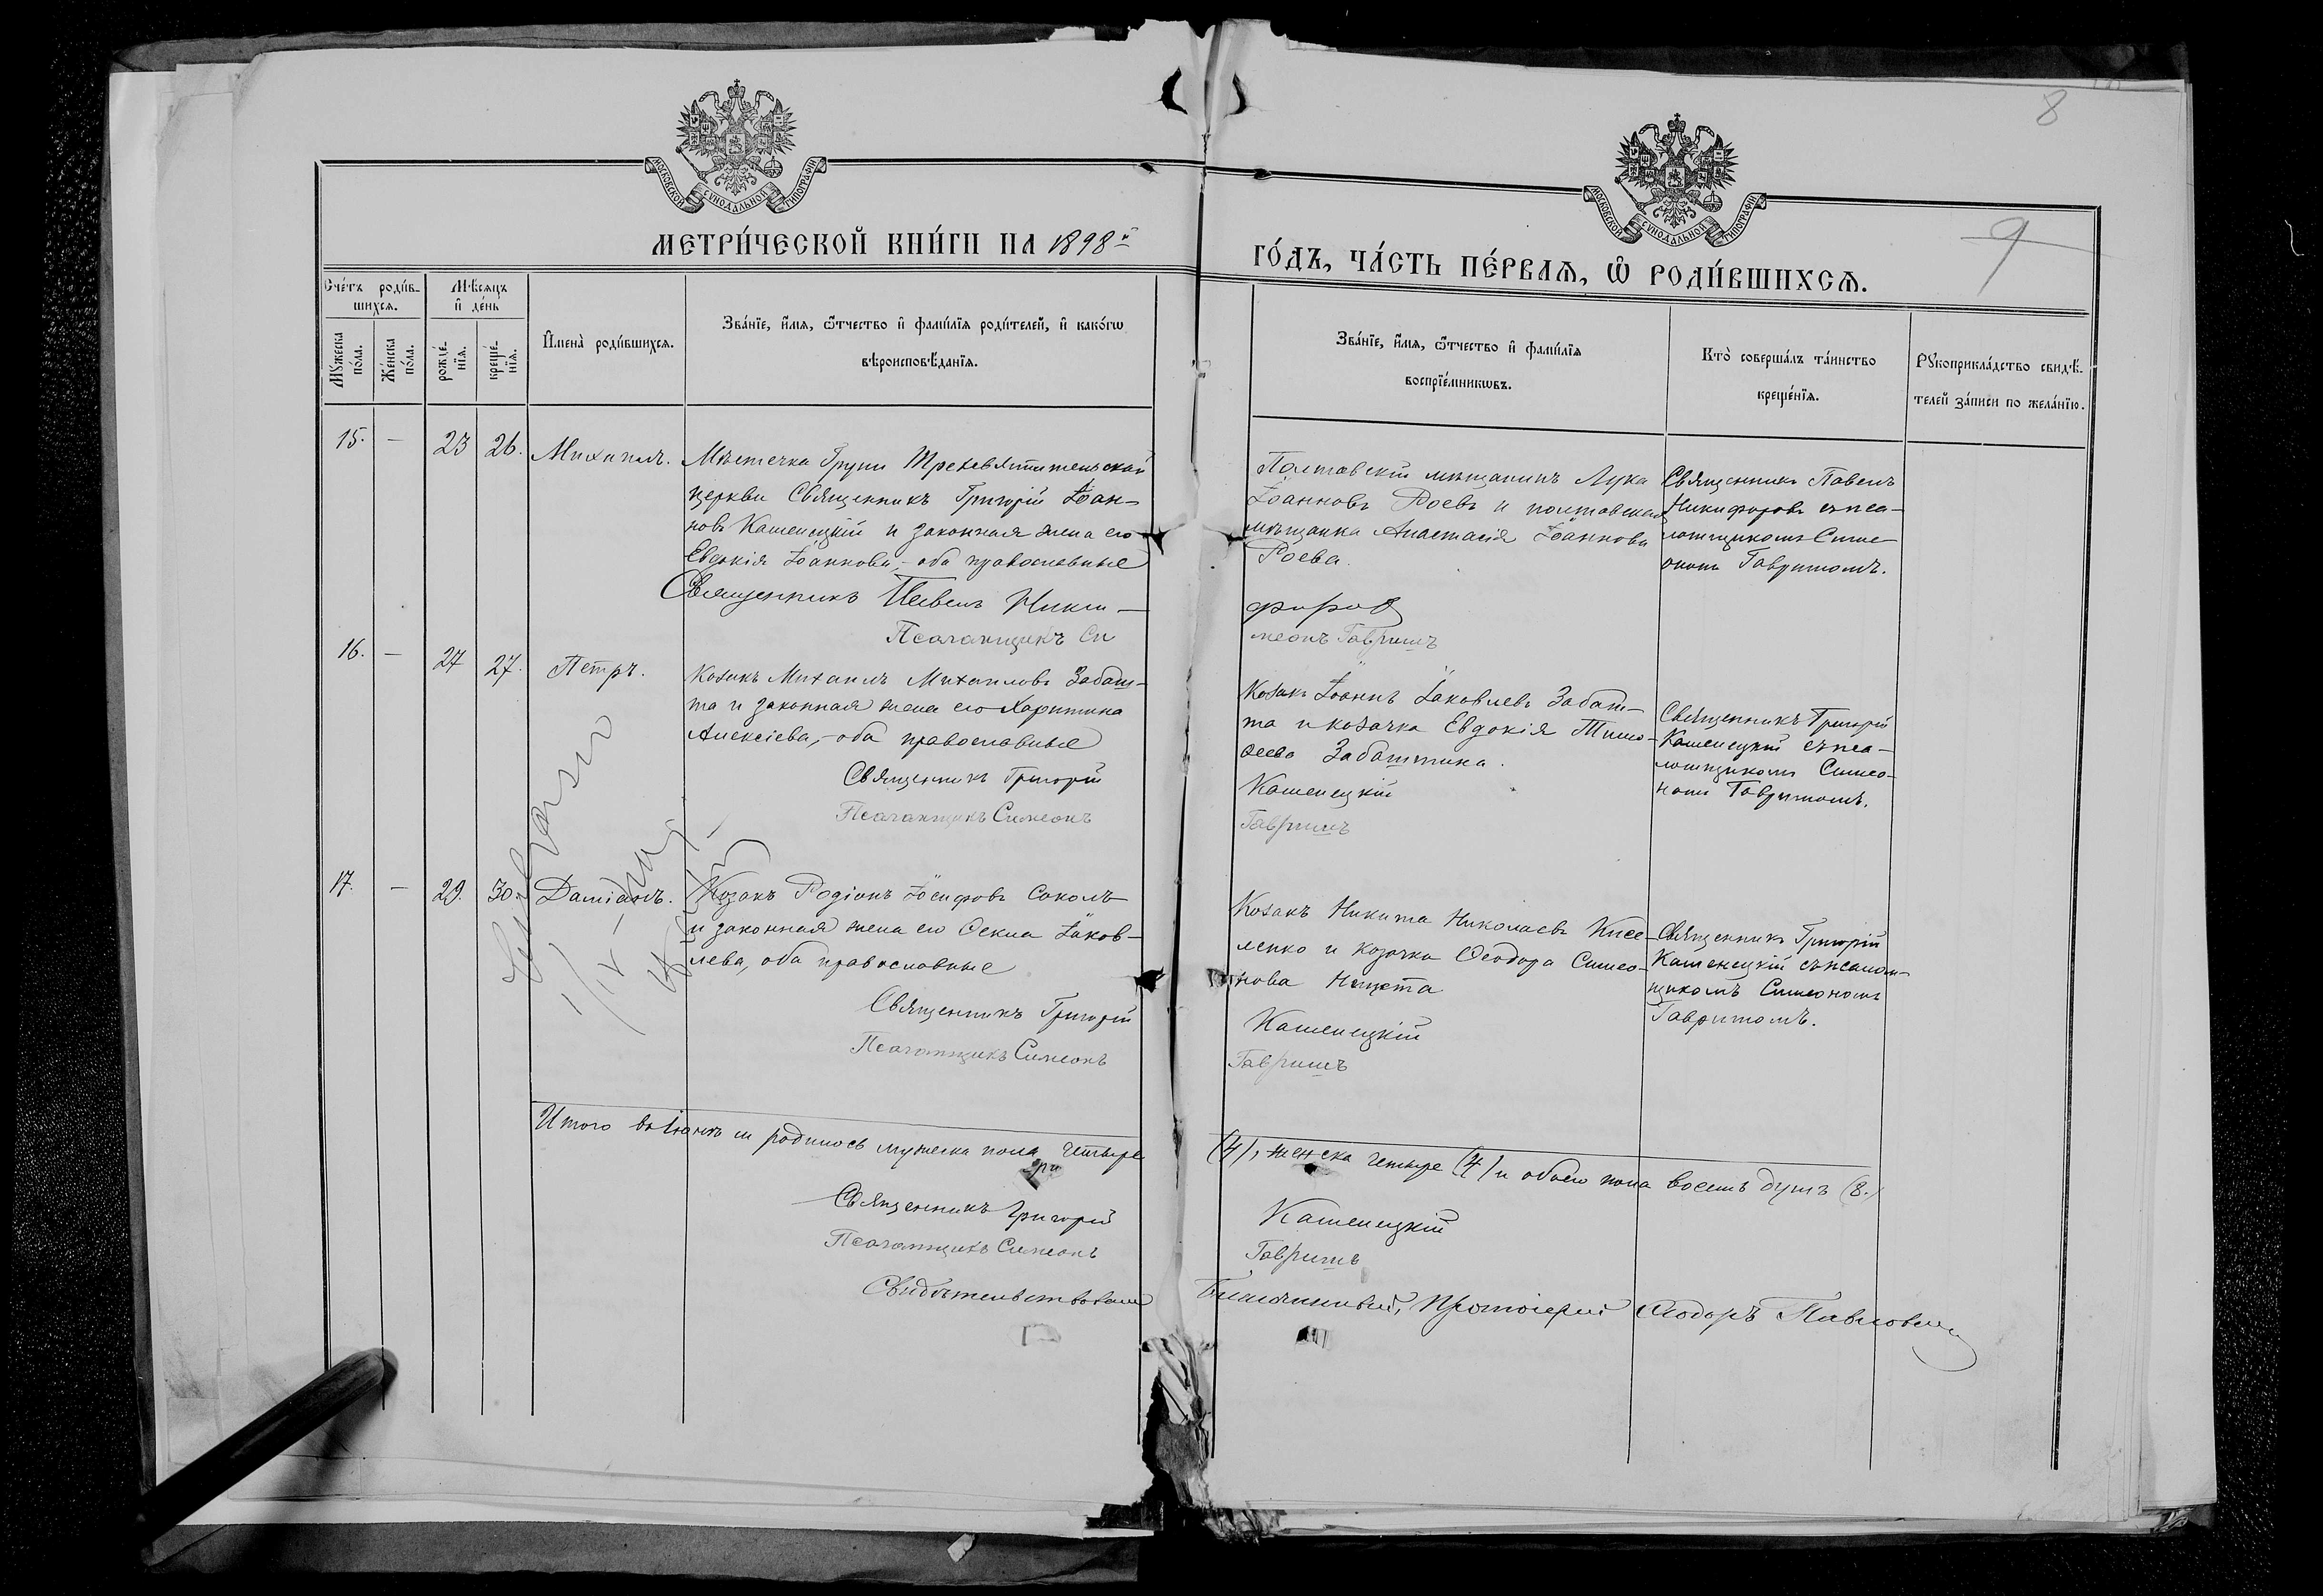 8
9
МОСКОВСКОЙ СѴНОДАЛЬНОЙ ТИПОГРАФІИ
МОСКОВСКОЙ СѴНОДАЛЬНОЙ ТИПОГРАФІИ
МЕТРИ́ЧЕСКОЙ КНИ́ГИ НА 1898й
ГО́ДЪ, ЧА́СТЬ ПЕ́РВАѦ, Ѡ҆ РОДИ́ВШИХСѦ.
Сче́тъ роди́в-
шихсѧ.
Мѣ́сѧцъ
и҆ де́нь
Мꙋжеска
по́ла.
Же́нска
по́ла.
рожде́-
нїѧ.
креще́-
нїѧ.
И҆мена̀ роди́вшихсѧ.
Зва́нїе, и҆́мѧ, ѻ҆́тчество и҆ фами́лїѧ роди́телей, и҆ како́гѡ
вѣроисповѣ́данїѧ.
Зва́нїе, и҆́мѧ, ѻ҆́тчество и҆ фами́лїѧ
воспрїе́мникѡвъ.
Кто̀ соверша́лъ та́инство
креще́нїѧ.
Рꙋкоприкла́дство свидѣ́-
телей за́писи по жела́нїю.
15. — 23 26. Михаилъ.
Мѣстечка Груни Трехсвятительской
церкви Священникъ Григорій Іоан-
новъ Кашенецкій и законная жена его
Евдокія Іоаннова,- оба православные
Священникъ Павелъ Ники-
Псаломщикъ Си
Полтавскій мѣщанинъ Лука
Іоанновъ Роевъ и полтавская
мѣщанка Анастасія Іоаннова
Роева.
форов
меонъ Гавришъ
Священникъ Павелъ
Никифоровъ съ пса-
ломщикомъ Симе-
ономъ Гавришомъ.
16. — 27 27. Петръ.
Козакъ Михаилъ Михаиловъ Забаш-
та и законная жена его Харитина
Алексіева,- оба православные
Священникъ Григорій
Псаломщикъ Симеонъ
Козакъ Іоаннъ Іаковлевъ Забаш-
та и козачка Евдокія Тимо-
ѳеева Забаштина.
Кашенецкій
Гавришъ
Священникъ Григорій
Кашенецкій съ пса-
ломщикомъ Симео-
номъ Гавришомъ.
17. — 29. 30. Даміанъ.
Козакъ Родіонъ Іосифовъ Соколъ
и законная жена его Ѳекла Іаков-
лева, оба православные
Священникъ Григорій
Псаломщикъ Симеонъ
Козакъ Никита Николаевъ Кисе-
ленко и козачка Ѳеодора Симео-
нова Нещета
Кашенецкій
Гавришъ
Священникъ Григорій
Кашенецкій съ псалом-
щикомъ Симеономъ
Гавришомъ.
Итого въ Іюнѣ м родилось мужеска пола четыре
(4), женска четыре (4) и обоего пола восемь душъ (8.)
Священникъ Григорій
Кашенецкій
Псаломщикъ Симеонъ
Гавришъ
Свидѣтельствовалъ
Благочинный, Протоіерей Ѳеодоръ Павловскій